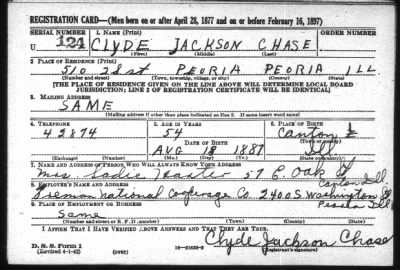 REGISTRATION CARD—(Men born on or after April 28, 1877 and on or before February 16, 1897)
SERIAL NUMBER 1. NAME (Print) ORDER NUMBER
U 124 CLYDE JACKSON CHASE
(First) (Middle) (Last)
2. PLACE OF RESIDENCE (Print)
510 21st PEORIA PEORIA ILL
(Number and street) (Town, township, village, or city) (County) (State)
[THE PLACE OF RESIDENCE GIVEN ON THE LINE ABOVE WILL DETERMINE LOCAL BOARD
JURISDICTION; LINE 2 OF REGISTRATION CERTIFICATE WILL BE IDENTICAL]
3. MAILING ADDRESS
SAME
[Mailing address if other than place indicated on line 2. If same insert word same]
4. TELEPHONE 5. AGE IN YEARS 6. PLACE OF BIRTH
42874 54 Canton
DATE OF BIRTH (Town or county)
AUG 18 1887 Ill
(Exchange) (Number) (Mo.) (Day) (Yr.) (State or country)
7. NAME AND ADDRESS OF PERSON WHO WILL ALWAYS KNOW YOUR ADDRESS
Mrs. Sadie 57 E. Oak St
Canton Ill
8. EMPLOYER'S NAME AND ADDRESS
National Cooperage Co 2400 S Washington St
Peoria Ill
9. PLACE OF EMPLOYMENT OR BUSINESS
Same
(Number and street or R. F. D. number) (Town) (County) (State)
I AFFIRM THAT I HAVE VERIFIED ABOVE ANSWERS AND THAT THEY ARE TRUE.
D. S. S. Form 1
(Revised 4-1-42) (over) Clyde Jackson Chase